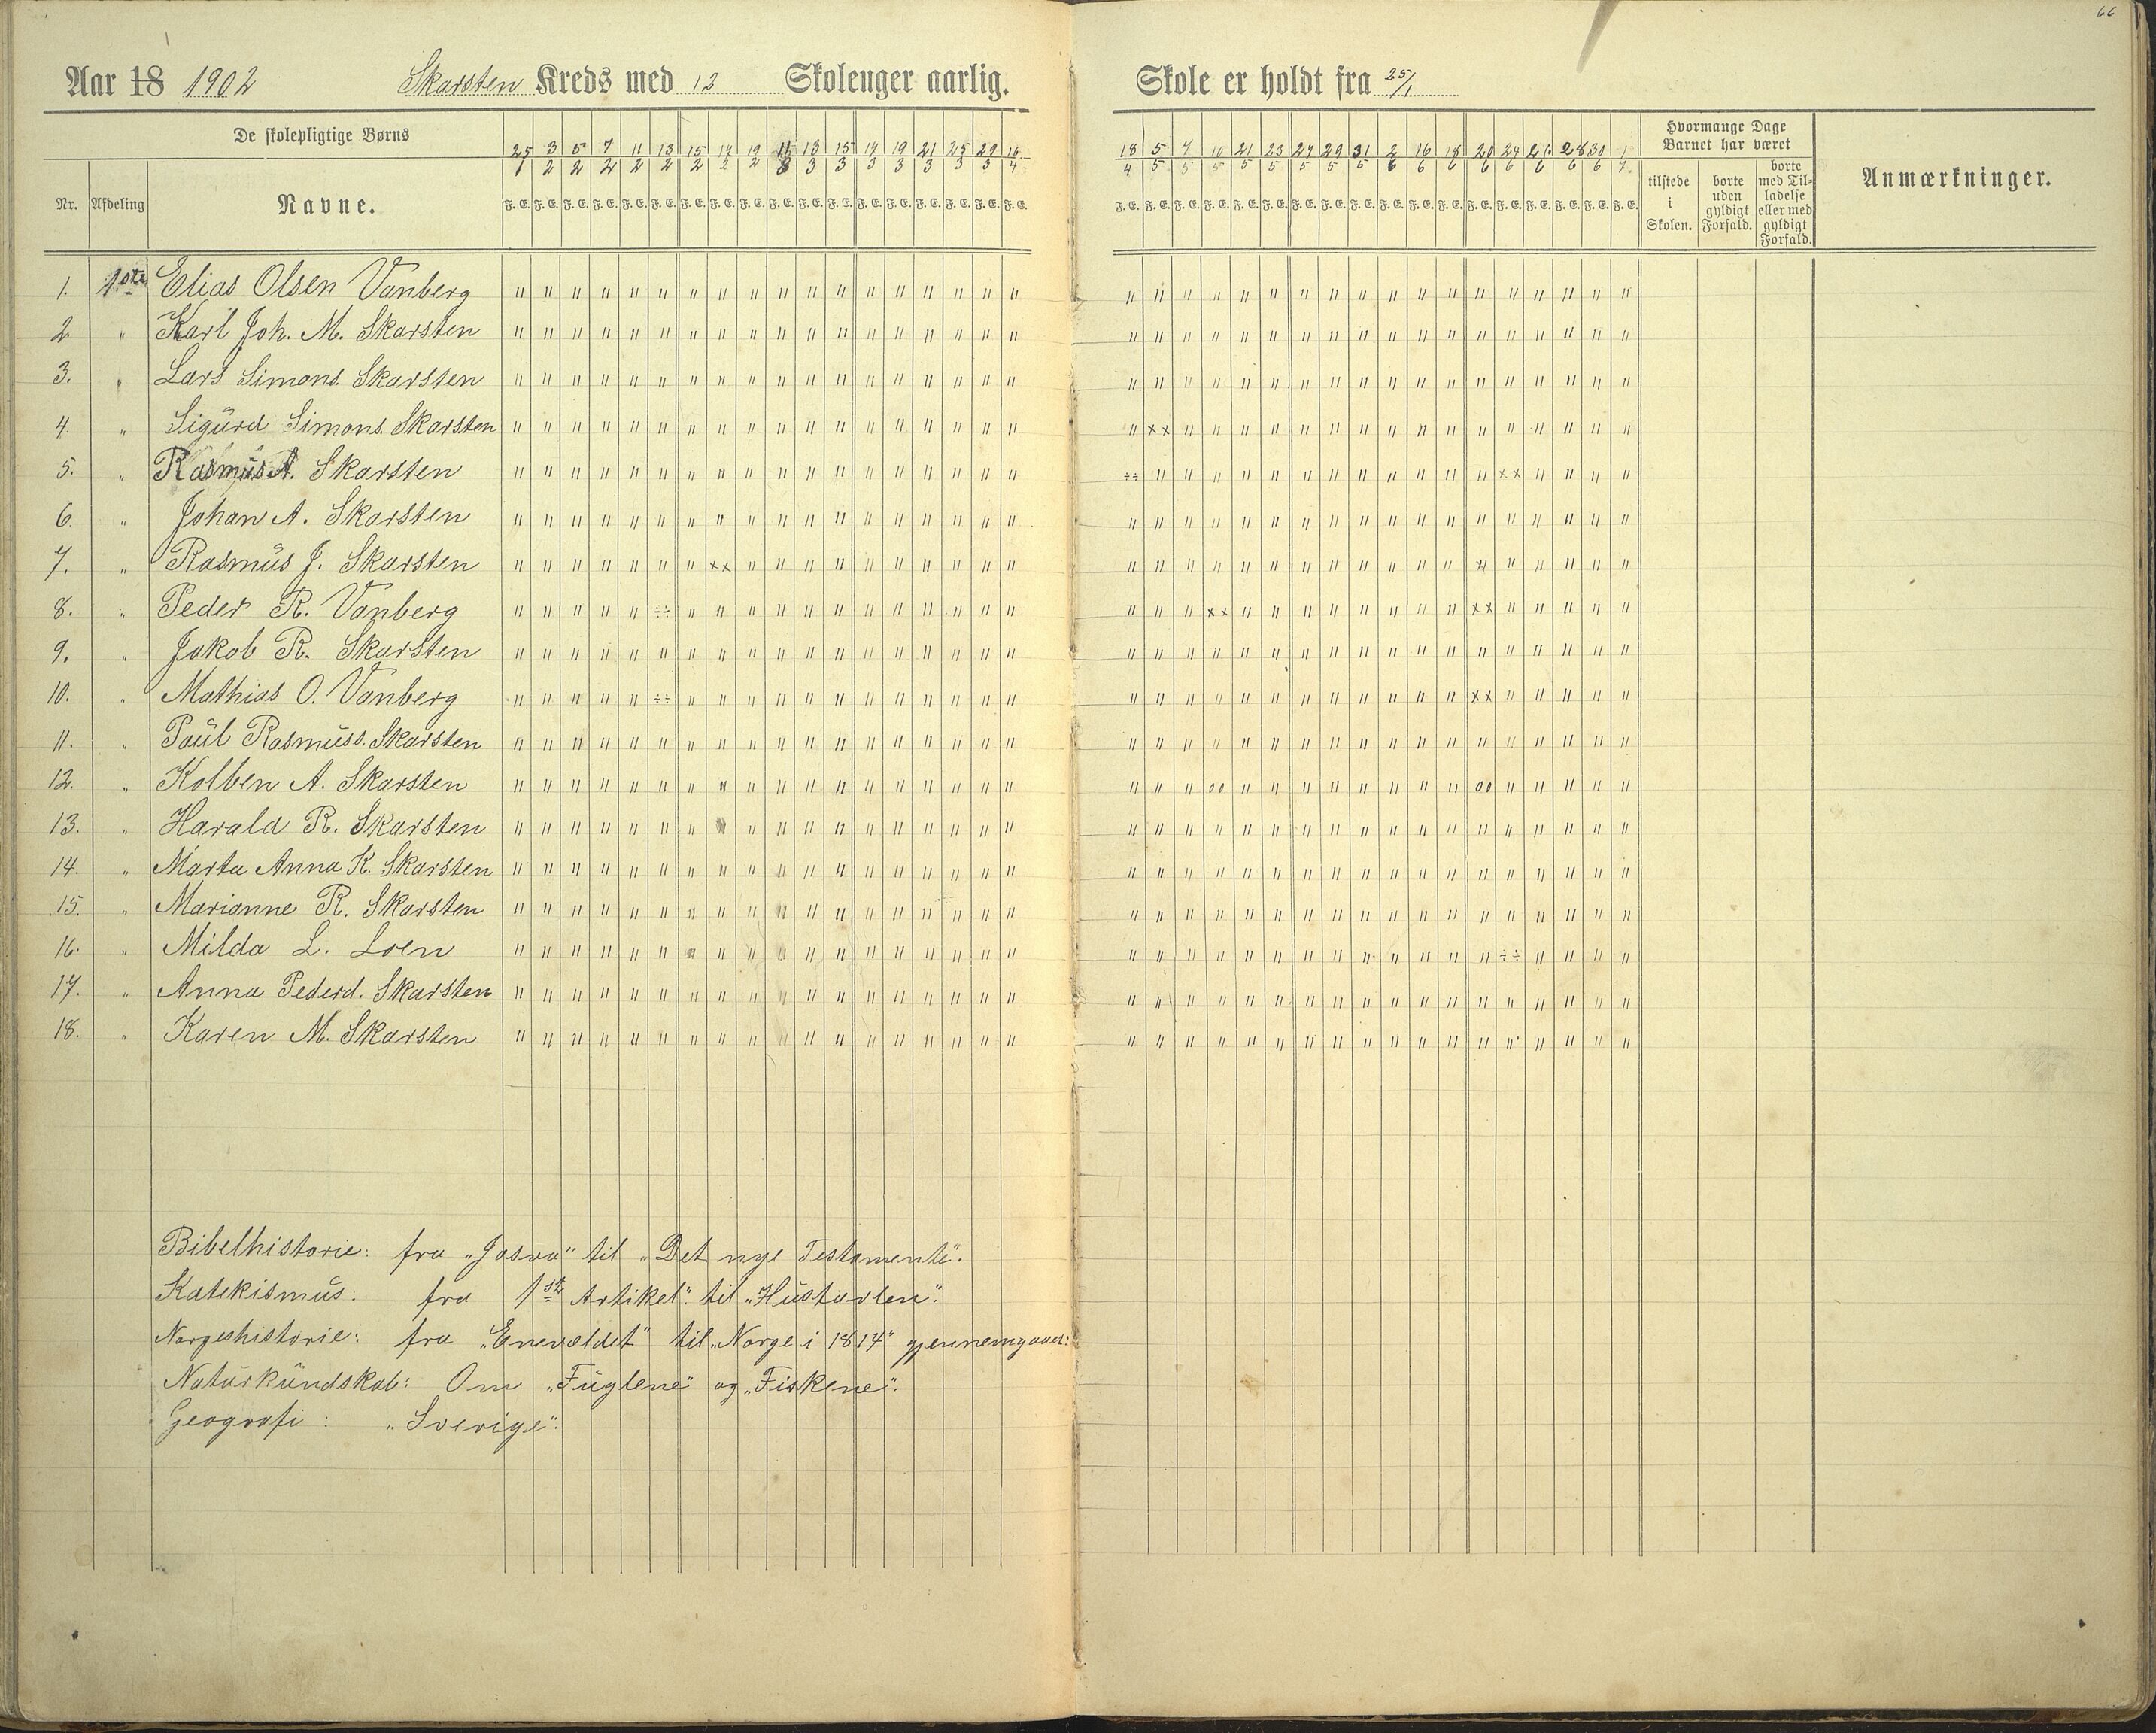 66
Aar 18 1902 Skarsten Kreds med 12 Skoleuger aarlig. Skole er holdt fra 25/1
De skolepligtige Børns
Nr. Afdeling Navne.
25/1 3/2 5/2 7/2 11/2 13/2 15/2 17/2 19/2 11/3 13/3 15/3 17/3 19/3 21/3 25/3 29/3 16/4
F. E. F. E. F. E. F. E. F. E. F. E. F. E. F. E. F. E. F. E. F. E. F. E. F. E. F. E. F. E. F. E. F. E. F. E.
18/4 5/5 7/5 10/5 21/5 23/5 27/5 29/5 31/5 2/6 16/6 18/6 20/6 24/6 26/6 28/6 30/6 1/7
F. E. F. E. F. E. F. E. F. E. F. E. F. E. F. E. F. E. F. E. F. E. F. E. F. E. F. E. F. E. F. E. F. E. F. E.
Hvormange Dage
Barnet har været
tilstede
i
Skolen.
borte
uden
gyldigt
Forfald.
borte
med Til-
ladelse
eller med
gyldigt
Forfald.
Anmærkninger.
1. 1ste Elias Olsen Vanberg
2 " Karl Joh. M. Skarsten
3. " Lars Simons. Skarsten
4. " Sigurd Simons. Skarsten
5. " Rasmus A. Skarsten
6. " Johan A. Skarsten
7. " Rasmus J. Skarsten
8. " Peder R. Vanberg
9. " Jakob R. Skarsten
10. " Mathias O. Vanberg
11. " Paul Rasmuss. Skarsten
12. " Kolben A. Skarsten
13. " Harald R. Skarsten
14. " Marta Anna K. Skarsten
15. " Marianne R. Skarsten
16. " Milda L. Loen
17. " Anna Pedersd. Skarsten
18. " Karen M. Skarsten
Bibelhistorie: fra "Josva" til "Det nye Testamente".
Katekismus: fra 1ste Artikel" til "Hustavlen".
Norgeshistorie: fra "Enevældet" til "Norge i 1814" gjennemgaaet.
Naturkundskab: Om "Fuglene" og "Fiskene".
Geografi: "Sverige".